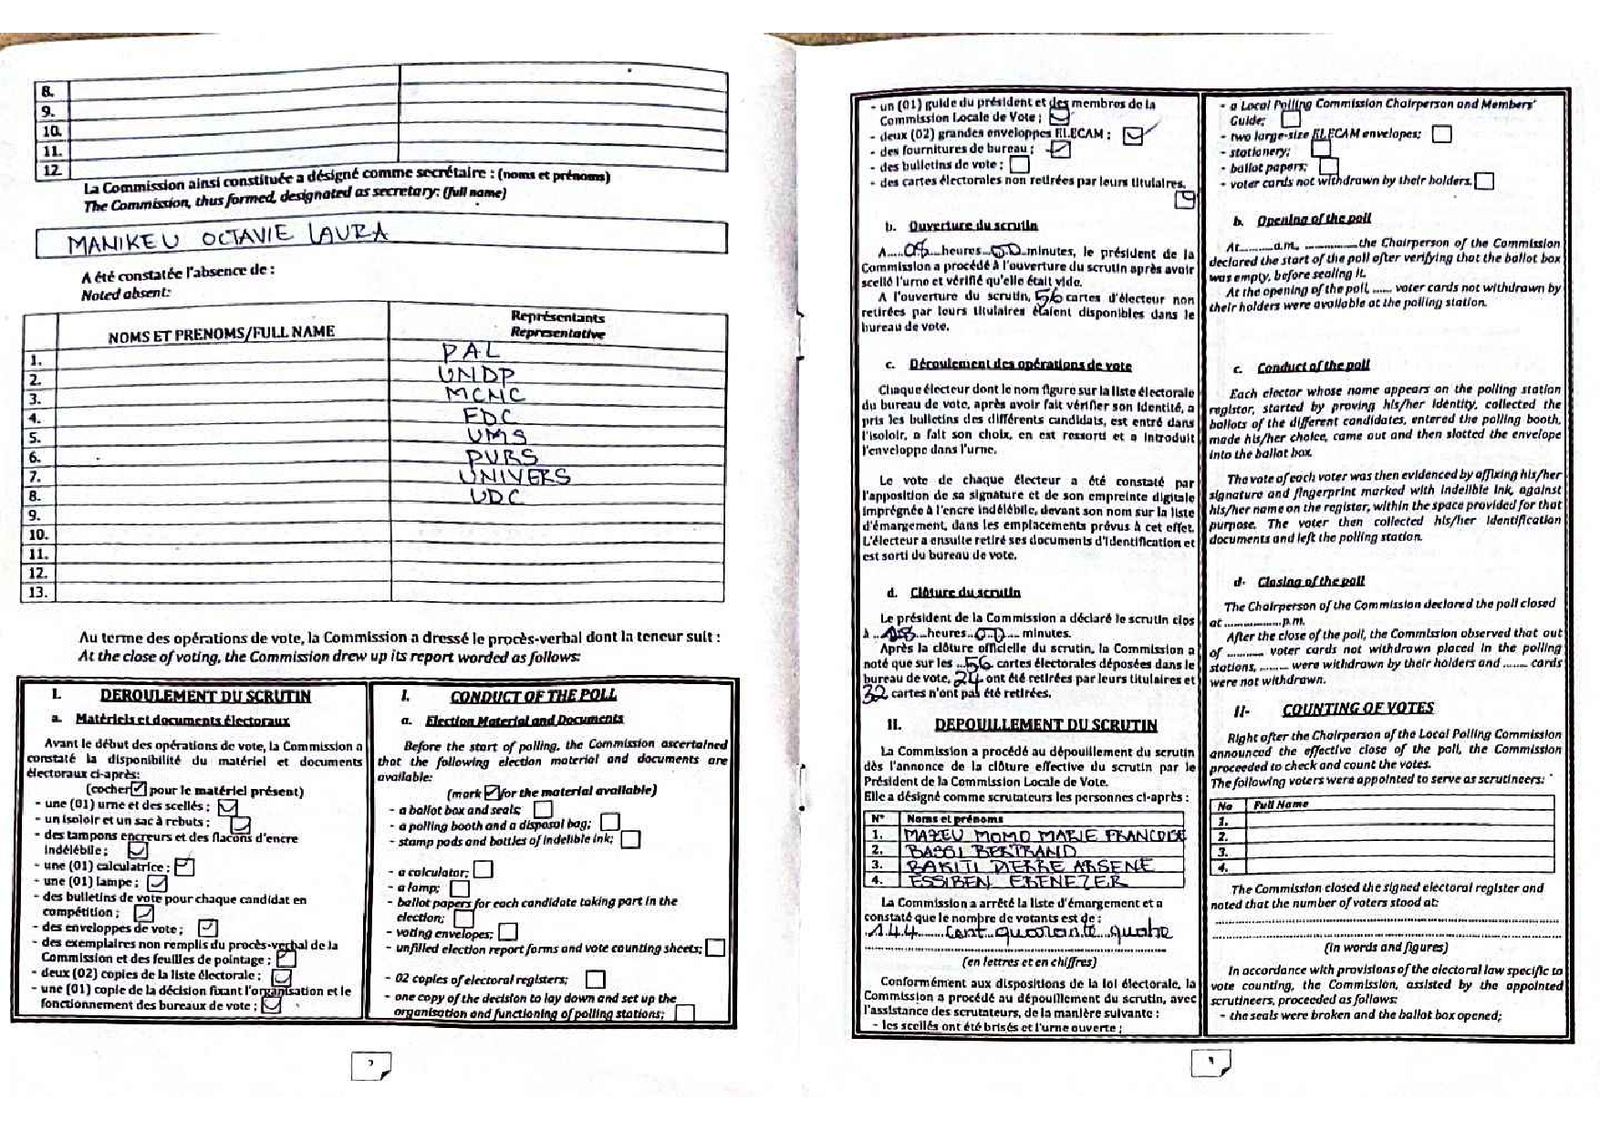 8.
9.
10.
11.
12.
La Commission ainsi constituée a désigné comme secrétaire : (noms et prénoms)
The Commission, thus formed, designated as secretary: (full name)
MANIKEU OCTAVIE LAURA
A été constatée l'absence de :
Noted absent:
NOMS ET PRENOMS/FULL NAME
Représentants
Representative
1. PAL
2. UNDP
3. MCNC
4. FDC
5. UMS
6. PURS
7. UNIVERS
8. UDC
9.
10.
11.
12.
13.
Au terme des opérations de vote, la Commission a dressé le procès-verbal dont la teneur suit :
At the close of voting, the Commission drew up its report worded as follows:
I. DEROULEMENT DU SCRUTIN
a. Matériels et documents électoraux
Avant le début des opérations de vote, la Commission a
constaté la disponibilité du matériel et documents
électoraux ci-après:
(cocher pour le matériel présent)
- une (01) urne et des scellés ;
- un isoloir et un sac à rebuts ;
- des tampons encreurs et des flacons d'encre
indélébile ;
- une (01) calculatrice ;
- une (01) lampe ;
- des bulletins de vote pour chaque candidat en
compétition ;
- des enveloppes de vote ;
- des exemplaires non remplis du procès-verbal de la
Commission et des feuilles de pointage ;
- deux (02) copies de la liste électorale ;
- une (01) copie de la décision fixant l'organisation et le
fonctionnement des bureaux de vote ;
I. CONDUCT OF THE POLL
a. Election Material and Documents
Before the start of polling, the Commission ascertained
that the following election material and documents are
available:
(mark for the material available)
- a ballot box and seals;
- a polling booth and a disposal bag;
- stamp pads and bottles of indelible ink;
- a calculator;
- a lamp;
- ballot papers for each candidate taking part in the
election;
- voting envelopes;
- unfilled election report forms and vote counting sheets;
- 02 copies of electoral registers;
- one copy of the decision to lay down and set up the
organisation and functioning of polling stations;
- un (01) guide du président et des membres de la
Commission Locale de Vote ;
- deux (02) grandes enveloppes ELECAM ;
- des fournitures de bureau ;
- des bulletins de vote ;
- des cartes électorales non retirées par leurs titulaires.
b. Ouverture du scrutin
A....08...heures...00...minutes, le président de la
Commission a procédé à l'ouverture du scrutin après avoir
scellé l'urne et vérifié qu'elle était vide.
A l'ouverture du scrutin, 56 cartes d'électeur non
retirées par leurs titulaires étaient disponibles dans le
bureau de vote.
c. Déroulement des opérations de vote
Chaque électeur dont le nom figure sur la liste électorale
du bureau de vote, après avoir fait vérifier son identité, a
pris les bulletins des différents candidats, est entré dans
l'isoloir, a fait son choix, en est ressorti et a introduit
l'enveloppe dans l'urne.
Le vote de chaque électeur a été constaté par
l'apposition de sa signature et de son empreinte digitale
imprégnée à l'encre indélébile, devant son nom sur la liste
d'émargement, dans les emplacements prévus à cet effet.
L'électeur a ensuite retiré ses documents d'identification et
est sorti du bureau de vote.
d. Clôture du scrutin
Le président de la Commission a déclaré le scrutin clos
à ..18..heures...00... minutes.
Après la clôture officielle du scrutin, la Commission a
noté que sur les ..56 cartes électorales déposées dans le
bureau de vote, 24 ont été retirées par leurs titulaires et
32 cartes n'ont pas été retirées.
II. DEPOUILLEMENT DU SCRUTIN
La Commission a procédé au dépouillement du scrutin
dès l'annonce de la clôture effective du scrutin par le
Président de la Commission Locale de Vote.
Elle a désigné comme scrutateurs les personnes ci-après :
N° Noms et prénoms
1. MAZEU MOMO MARIE FRANCOISE
2. BASSI BERTRAND
3. BAKITI PIERRE ARSENE
4. ESSIBEN EBENEZER
La Commission a arrêté la liste d'émargement et a
constaté que le nombre de votants est de :
144 cent quarante quatre
(en lettres et en chiffres)
Conformément aux dispositions de la loi électorale, la
Commission a procédé au dépouillement du scrutin, avec
l'assistance des scrutateurs, de la manière suivante :
- les scellés ont été brisés et l'urne ouverte ;
- a Local Polling Commission Chairperson and Members'
Guide;
- two large-size ELECAM envelopes;
- stationery;
- ballot papers;
- voter cards not withdrawn by their holders.
b. Opening of the poll
At..........a.m. ...............the Chairperson of the Commission
declared the start of the poll after verifying that the ballot box
was empty, before sealing it.
At the opening of the poll, ...... voter cards not withdrawn by
their holders were available at the polling station.
c. Conduct of the poll
Each elector whose name appears on the polling station
register, started by proving his/her identity, collected the
ballots of the different candidates, entered the polling booth,
made his/her choice, came out and then slotted the envelope
into the ballot box.
The vote of each voter was then evidenced by affixing his/her
signature and fingerprint marked with indelible ink, against
his/her name on the register, within the space provided for that
purpose. The voter then collected his/her identification
documents and left the polling station.
d- Closing of the poll
The Chairperson of the Commission declared the poll closed
at....................p.m.
After the close of the poll, the Commission observed that out
of .......... voter cards not withdrawn placed in the polling
stations, ......... were withdrawn by their holders and ....... cards
were not withdrawn.
II- COUNTING OF VOTES
Right after the Chairperson of the Local Polling Commission
announced the effective close of the poll, the Commission
proceeded to check and count the votes.
The following voters were appointed to serve as scrutineers:
No Full Name
1.
2.
3.
4.
The Commission closed the signed electoral register and
noted that the number of voters stood at:
(in words and figures)
In accordance with provisions of the electoral law specific to
vote counting, the Commission, assisted by the appointed
scrutineers, proceeded as follows:
- the seals were broken and the ballot box opened;